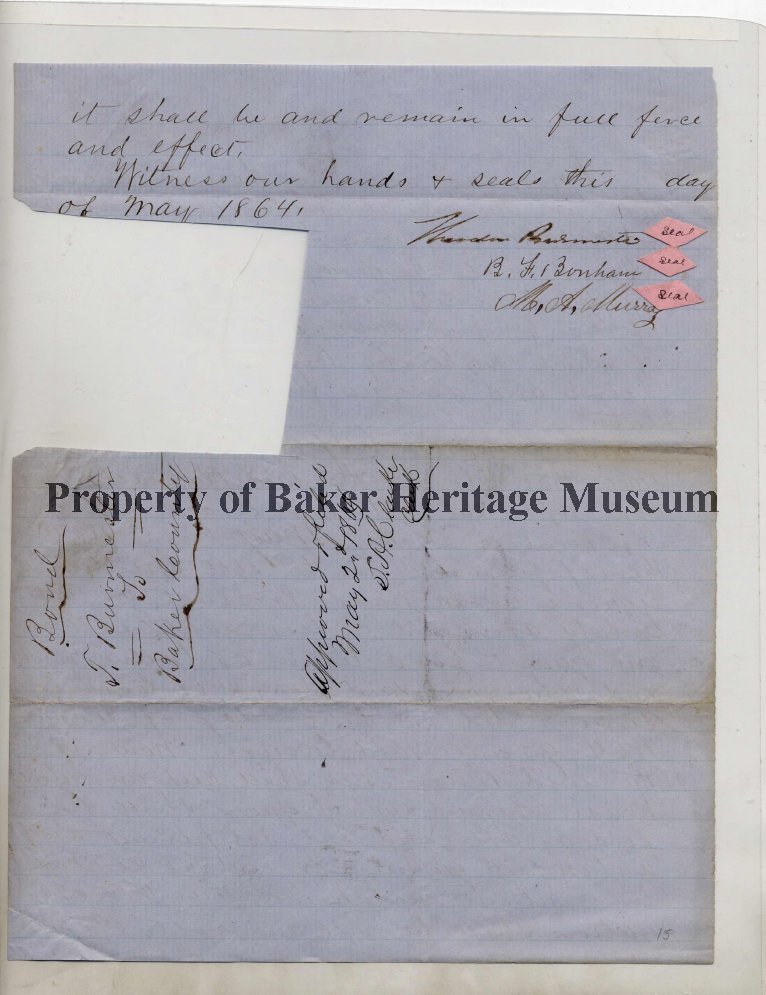 it shall be and remain in full force
and effect.
Witness our hands & seals this day
of May 1864.
Theodor Burmester seal
B. F. Bonham seal
M. A. Murray seal
Property of Baker Heritage Museum
Bond
T. Burmester
To
Baker County
Approved & filed
May 2nd 1864
15